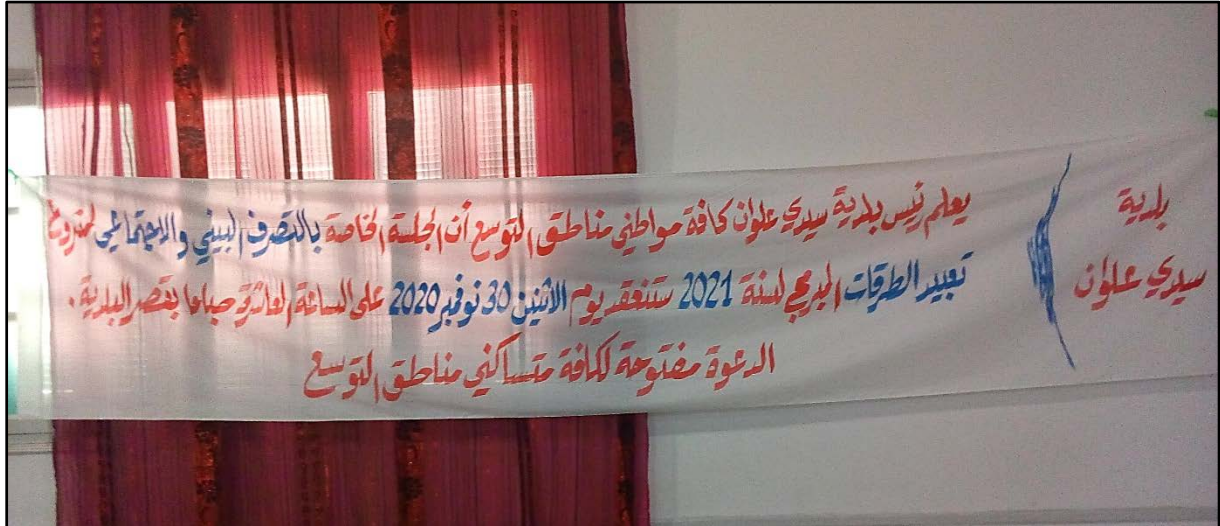 بلدية
سيدي علوان
يعلم رئيس بلدية سيدي علوان كافة مواطني مناطق التوسع أن الجلسة الخاصة بالتصرف البيئي والاجتماعي لمشروع
تعبيد الطرقات المبرمج لسنة 2021 ستنعقد يوم الاثنين 30 نوفمبر 2020 على الساعة العاشرة صباحا بقصر البلدية .
الدعوة مفتوحة لكافة متساكني مناطق التوسع